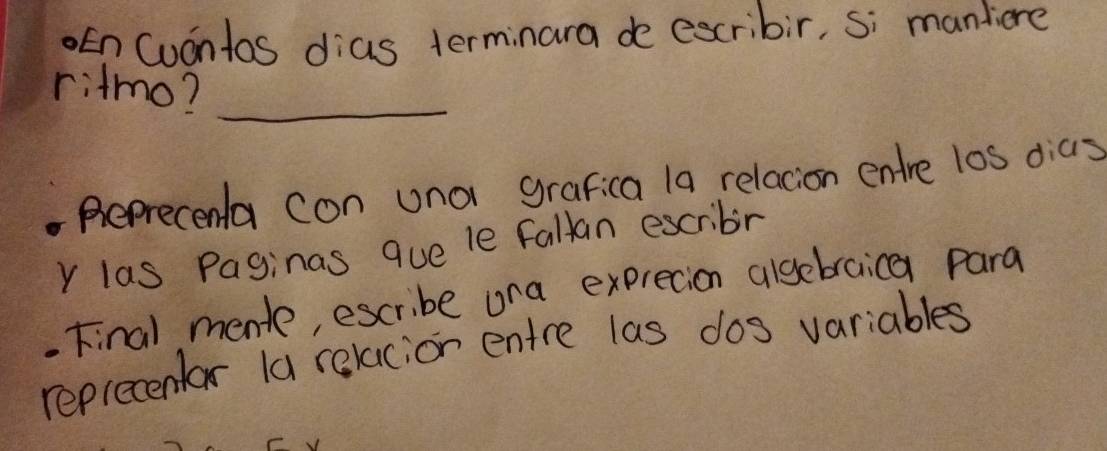 •En Cuántos dias terminara de escribir, si mantiene
ritmo?
• Reprecenta con una grafica la relacion entre los dias
y las Paginas que le faltan escribir
• Final mente, escribe una exprecion algebraica para
reprecentar la relación entre las dos variables